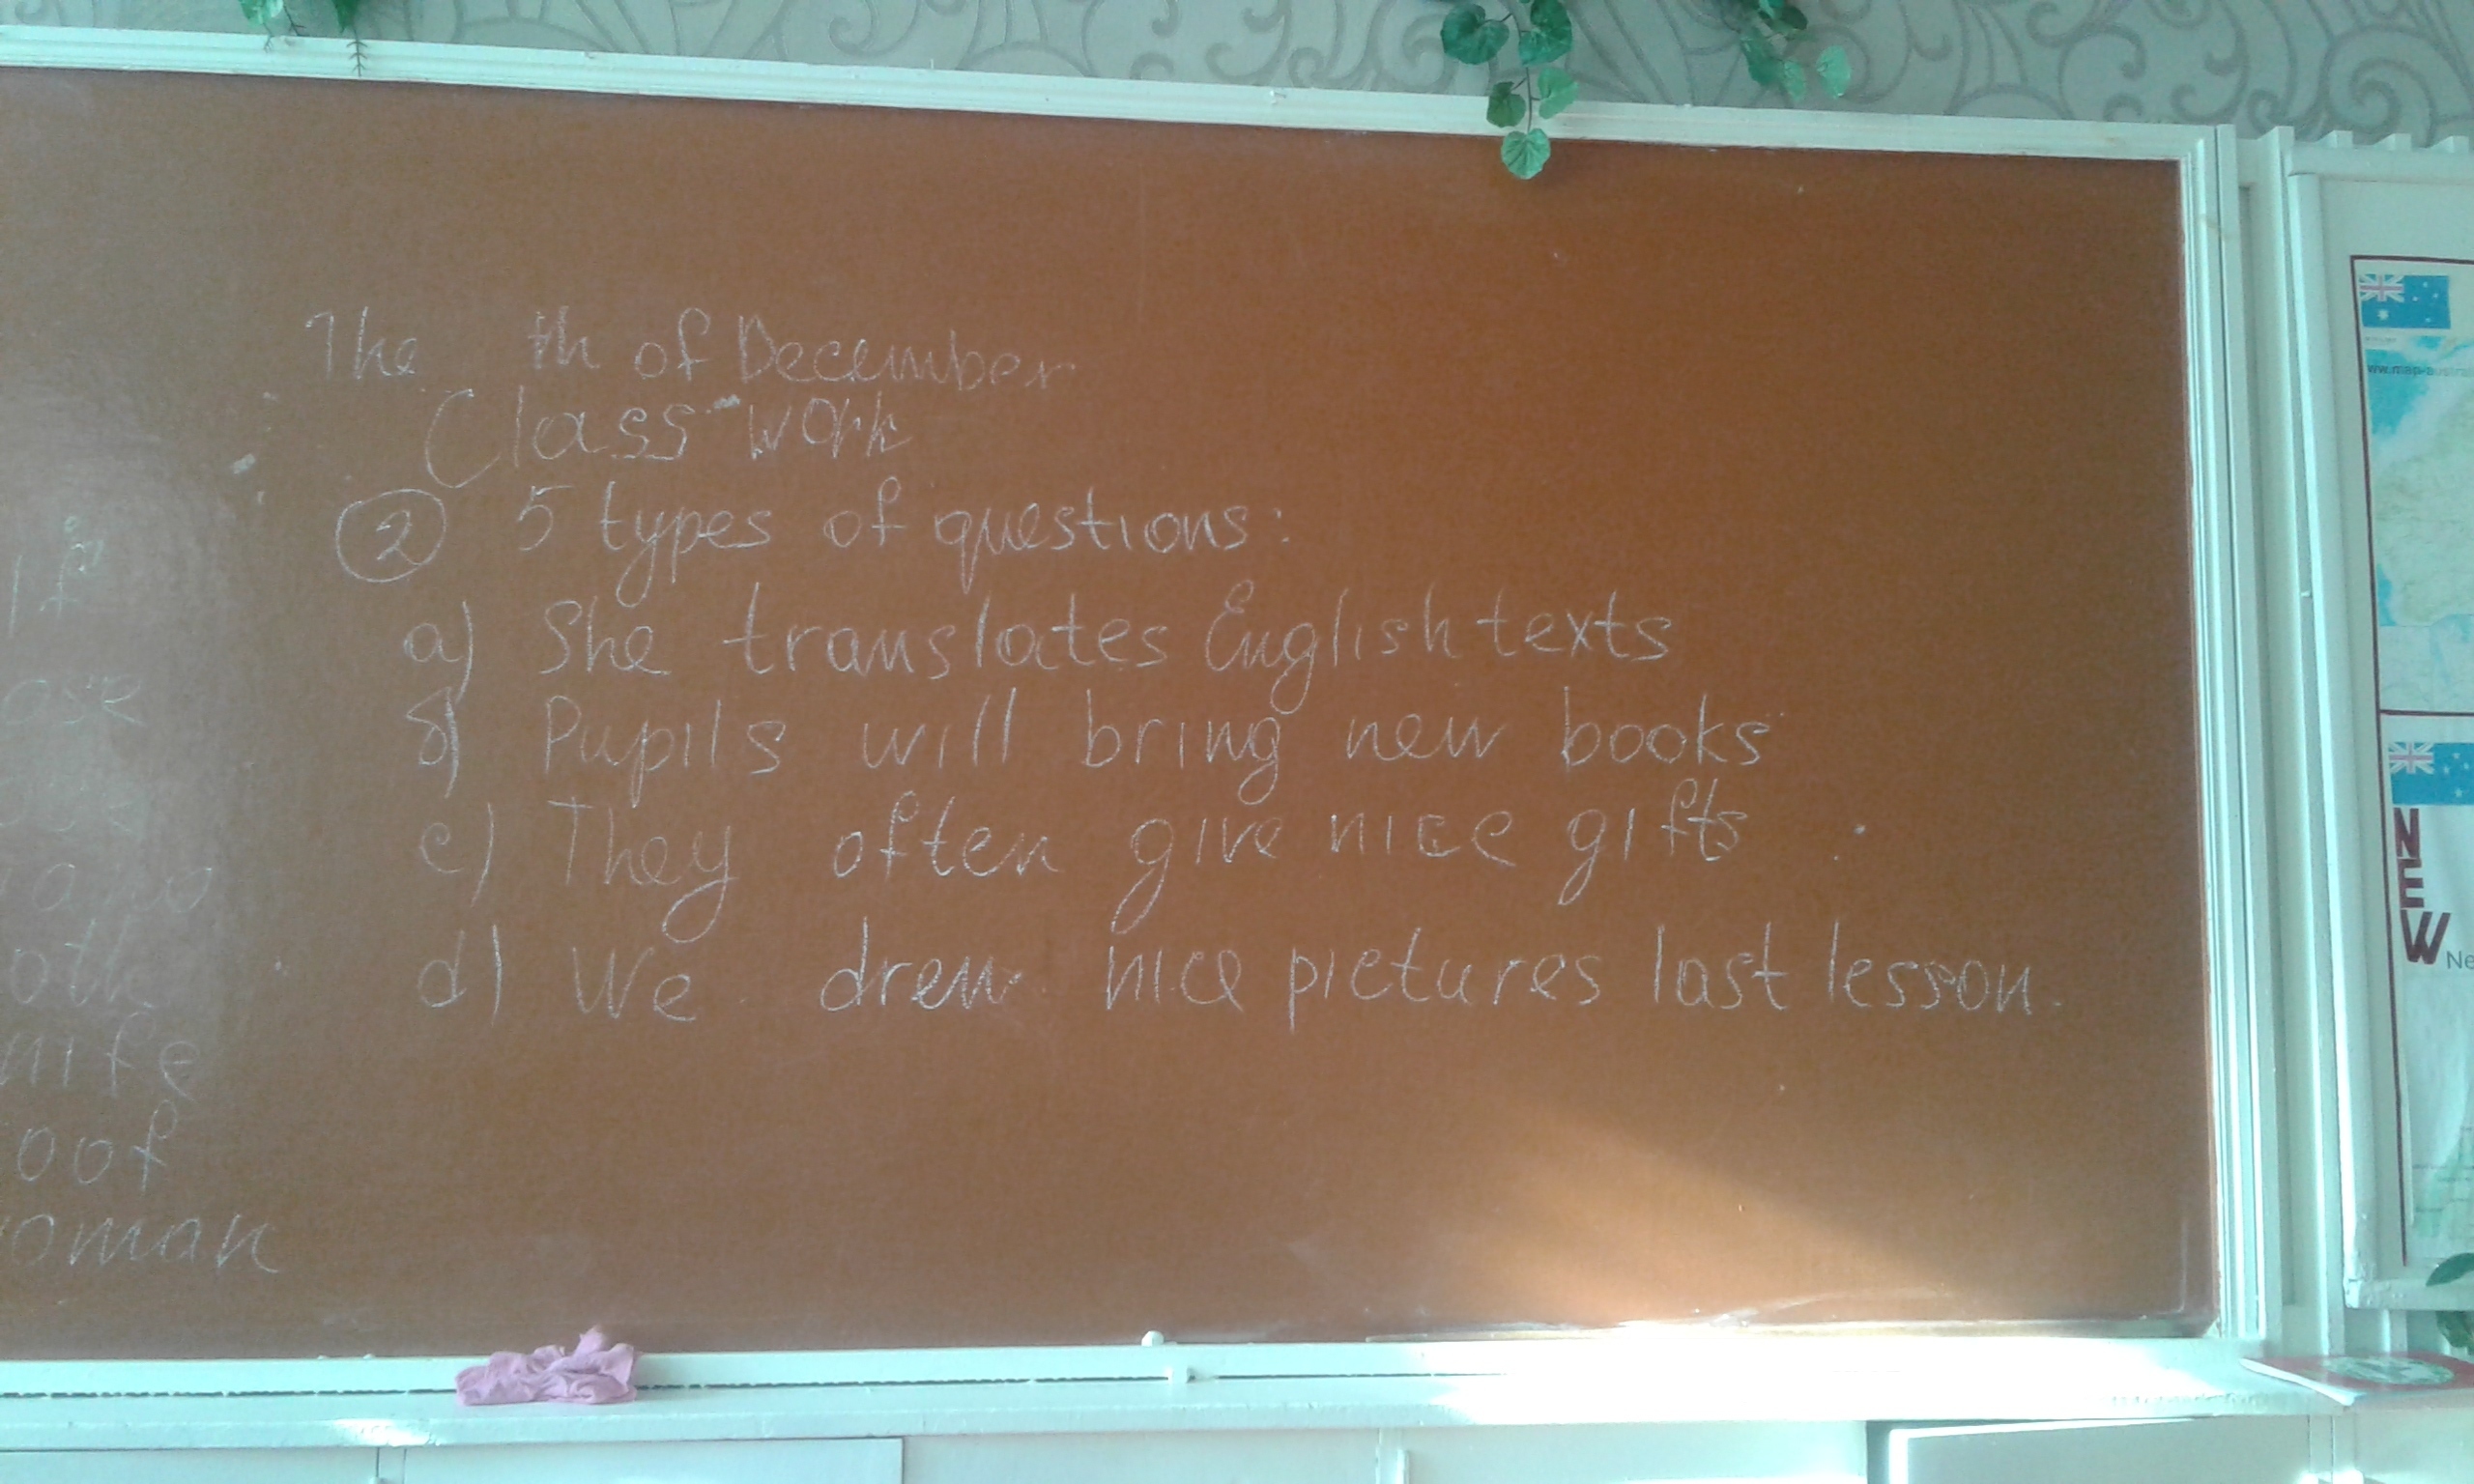 The th of December
Class-work
② 5 types of questions:
a) She translates English texts
б) Pupils will bring new books
c) They often give nice gifts
d) We drew nice pictures last lesson.
lf
ose
oth
nife
oof
oman
NEW